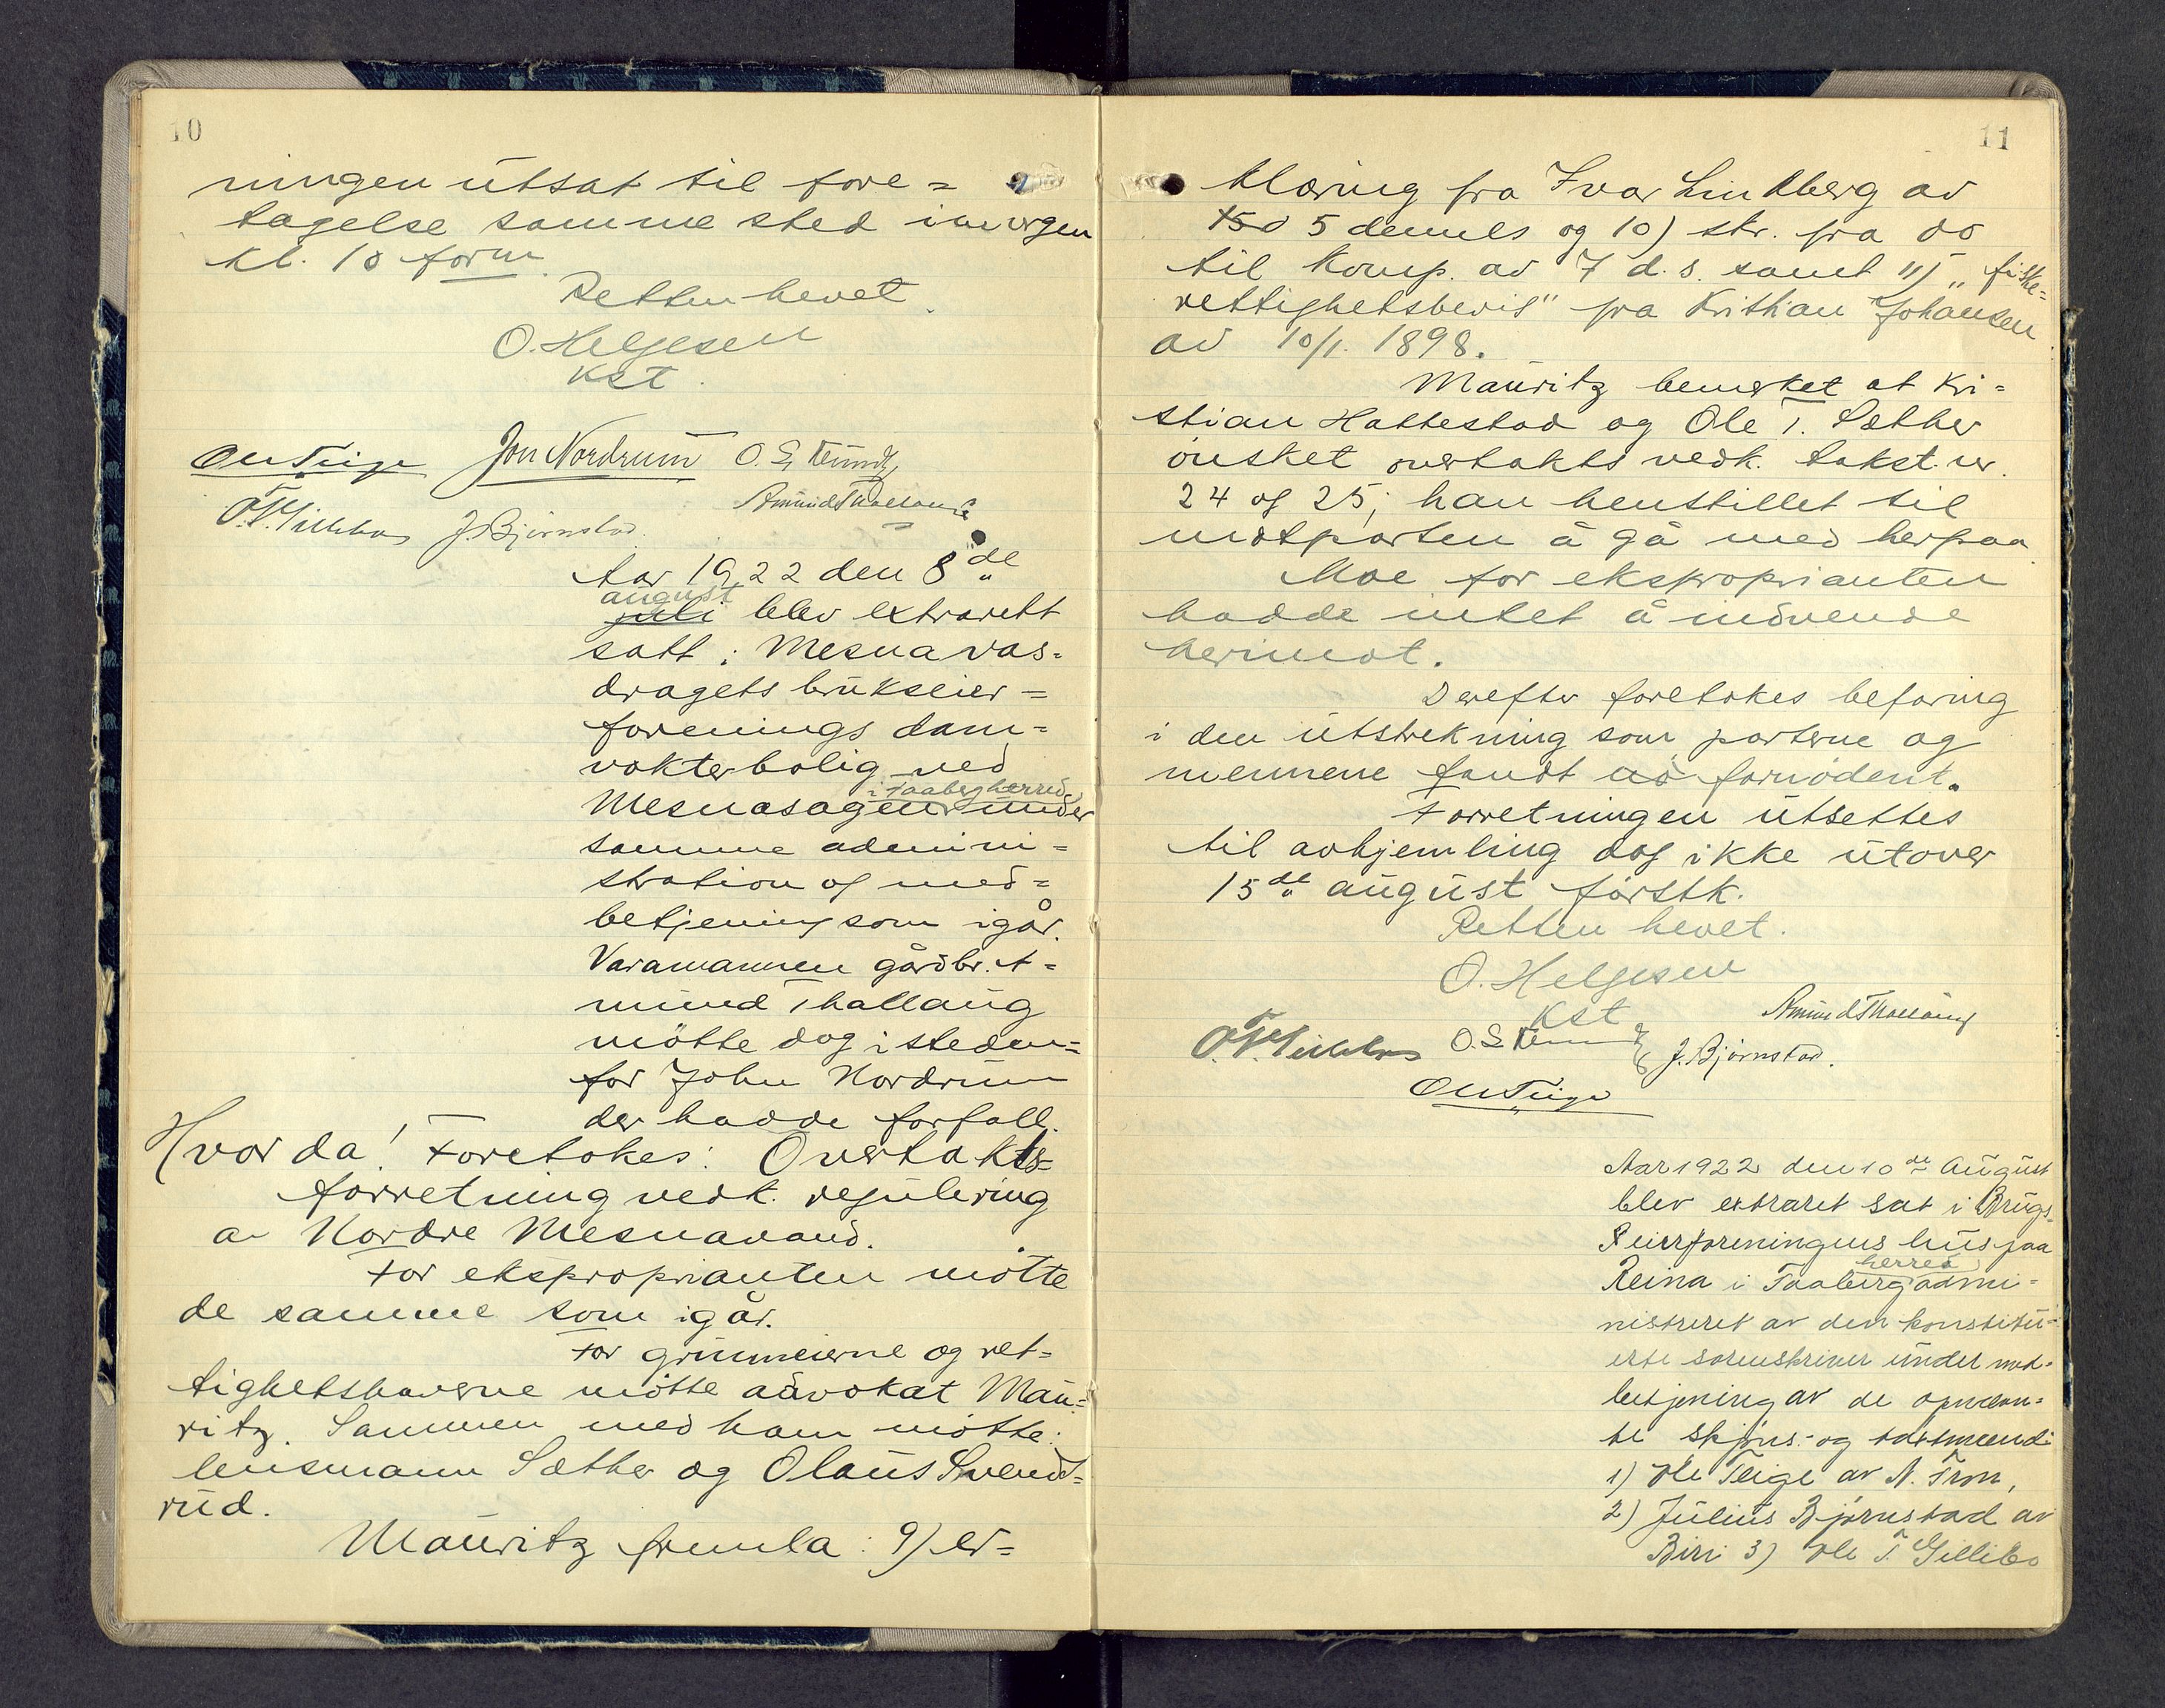 10
ningen utsat til fore=
tagelse samme sted imorgen
kl. 10 form
Retten hevet.
O. Helgesen
Kst.
Ole Teige Jon Nordrum O. S.
O. T. Gillebo J. Bjørnstad. Amund Thallaug
Aar 1922 den 8de
august
juli blev extrarett
satt i Mesnavas=
dragets brukseier=
forenings dam=
vokterbolig ved
i Faaberg herred
Mesnasagen under
samme admini=
stration og med=
betjening som igår.
Varamannen gårdbr. A=
mund Thallaug
møtte dog isteden=
for John Nordrum
der hadde forfall.
Hvor da! Foretokes: Overtakts=
forretning vedk. regulering
av Nordre Mesnavand.
For ekspropianten møtte
de samme som igår.
For grunneierne og ret=
tighetshaverne møtte advokat Mau=
ritz. Sammen med ham møtte:
lensmann Sæther og Olaus Svend=
rud.
Mauritz fremla: 9) er=
11
klæring fra Ivar Lindberg av
15d 5 dennes og 10) skr. fra do
til Komp. av 7 d.s. samt 11) „fiske=
rettighetsbevis" fra Kristian Johansen
av 10/1. 1898.
Mauritz bemerket at Kri=
stian Hattestad og Ole T. Sæther
ønsket overtakts vedk. takst. nr.
24 og 25; han henstillet til
motparten å gå med herpaa.
Moe for eksproprianten
hadde intet å indvende
herimot.
Derefter foretokes befaring
i den utstrekning som parterne og
mennene fandt det fornødent.
Forretningen utsettes
til avhjemling dog ikke utover
15de august førstk.
Retten hevet.
O. Helgesen
Kst
O. T. Gillebo O. S. J. Bjørnstad. Amund Thallaug
Ole Teige
Aar 1922 den 10de August
blev extraret sat i Brugs=
eierforeningens hus paa
herred
Reina i Faaberg admi=
nistreret av den konstitu=
erte sorenskriver under med=
betjening av de opnævn=
te skjøns- og takstmænd:
1) Ole Teige av N. Fron,
2) Julius Bjørnstad av
Biri 3) Ole T. Gillebo